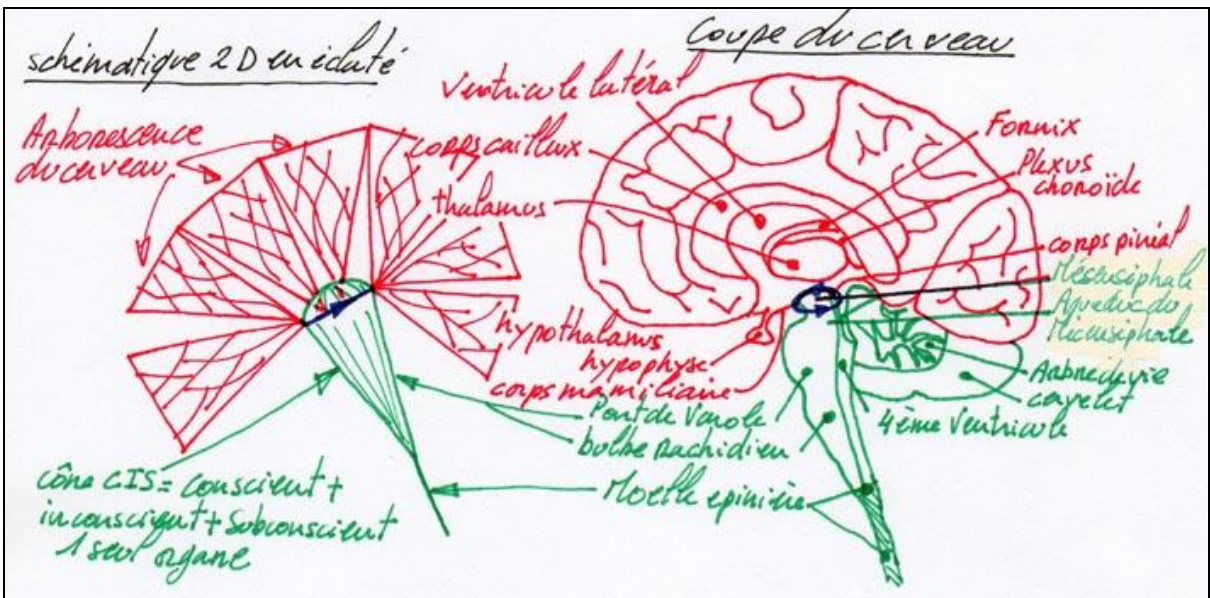 schématique 2D en éclaté
Coupe du cerveau
Arborescence
du cerveau
Ventricule latéral
corps cailleux
thalamus
Fornix
Plexus
choroïde
corps pinéal
Mésensiphale
Aqueduc du
Mésensiphale
hypothalamus
hypophyse
corps mamiliaire
Pont de Varole
bulbe Rachidien
Moelle epinière
Arbre de vie
cervelet
4ème Ventricule
cône CIS = conscient +
inconscient + Subconscient
1 seul organe